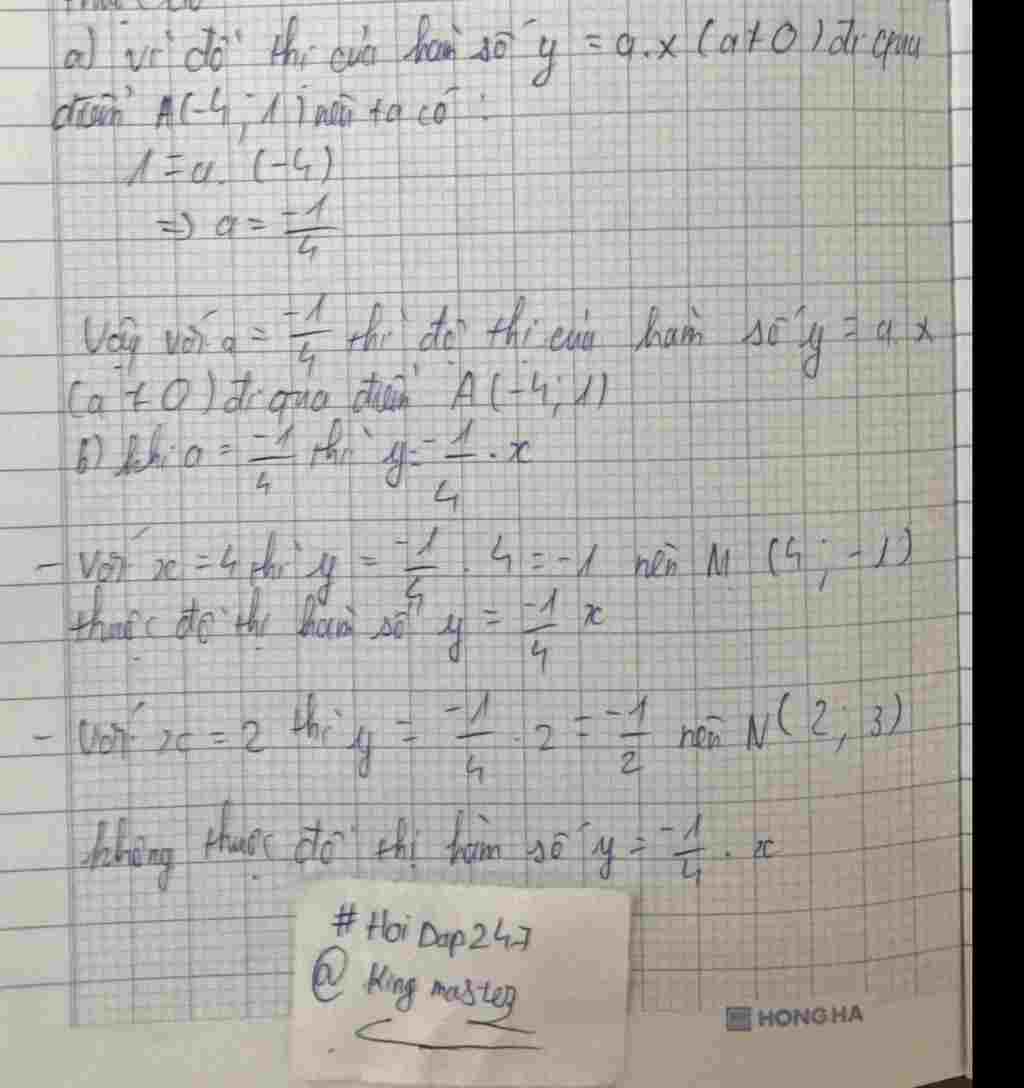 a) vì đồ thị của hàm số y = a.x (a ≠ 0) đi qua
điểm A(-4; 1) nên ta có:
1 = a. (-4)
=> a = -1/4
Vậy với a = -1/4 thì đồ thị của hàm số y = a.x
(a ≠ 0) đi qua điểm A(-4; 1)
b) khi a = -1/4 thì y = -1/4 . x
- Với x = 4 thì y = -1/4 . 4 = -1 nên M (4; -1)
thuộc đồ thị hàm số y = -1/4 x
- Với x = 2 thì y = -1/4 . 2 = -1/2 nên N(2; 3)
không thuộc đồ thị hàm số y = -1/4 . x
# Hoi Dap 247
@ King master
HONG HA